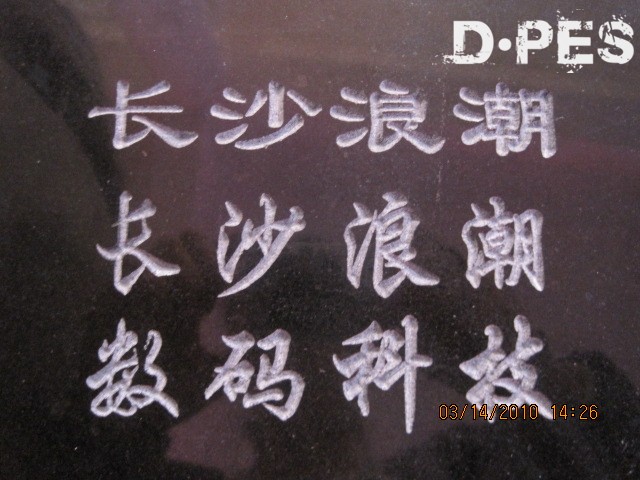 D·PES
长沙浪潮
长沙浪潮
数码科技
03/14/2010 14:26